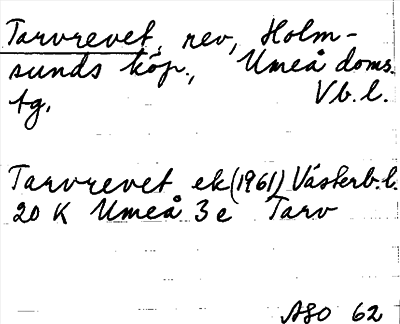 Tarvrevet, rev, Holm-
sunds köp., Umeå doms.
tg. Vb.l.
Tarvrevet ek (1961) Västerb.l.
20 K Umeå 3e Tarv
ASO 62